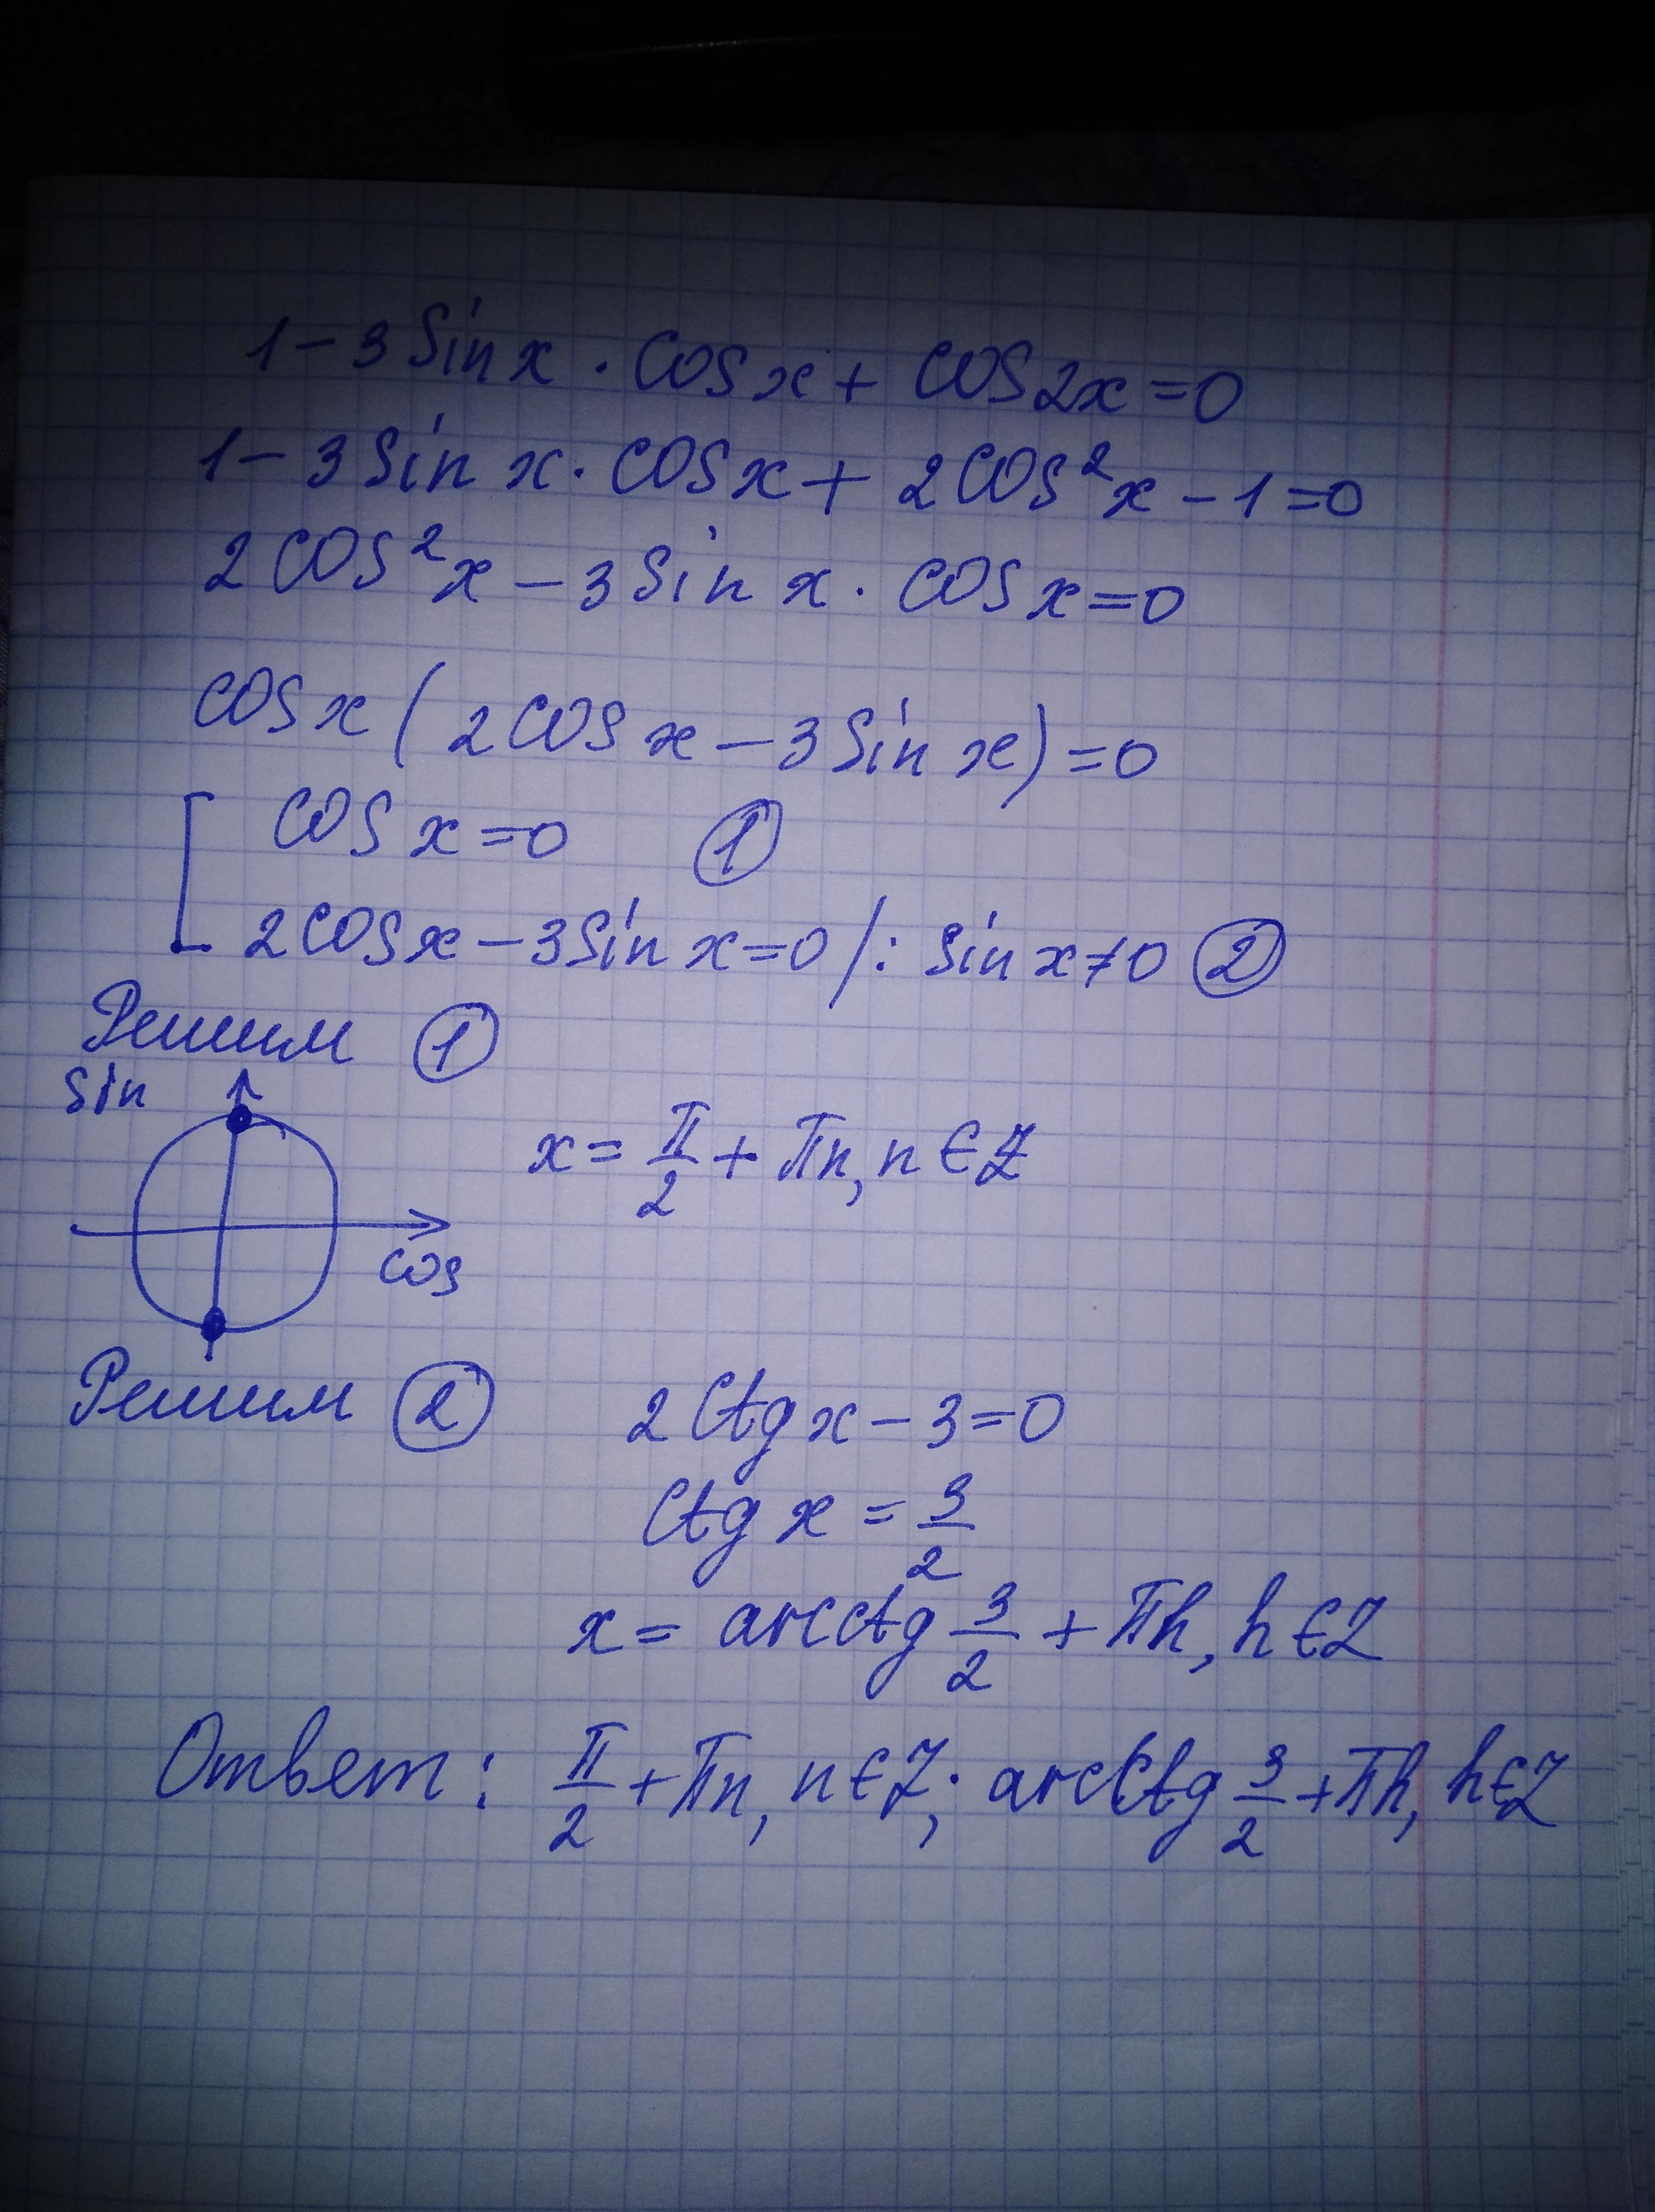 1-3 sin x · cos x + cos 2x = 0
1-3 sin x · cos x + 2cos²x - 1 = 0
2cos²x - 3 sin x · cos x = 0
cos x (2cos x - 3 sin x) = 0
[ cos x = 0 ①
2cos x - 3 sin x = 0 /: sin x ≠ 0 ②
Решим ①
sin
x = π/2 + πn, n ∈ Z
cos
Решим ② 2ctg x - 3 = 0
ctg x = 3/2
x = arcctg 3/2 + πh, h ∈ Z
Ответ: π/2 + πn, n ∈ Z; arcctg 3/2 + πh, h ∈ Z